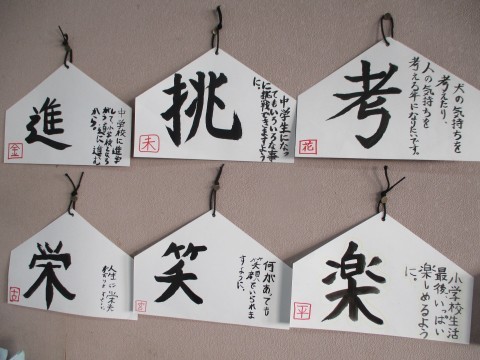 進
中学校に進
金
挑
中学生になっ
てもいろいろな事
に挑戦できますよう
に。
未
考
犬の気持ちを
考えたり、
人の気持ちを
考える年になりたいです。
花
栄
吉
笑
何があっても
笑顔でいられま
すように。
宮
楽
小学校生活
最後いっぱい
楽しめるよう
に。
平